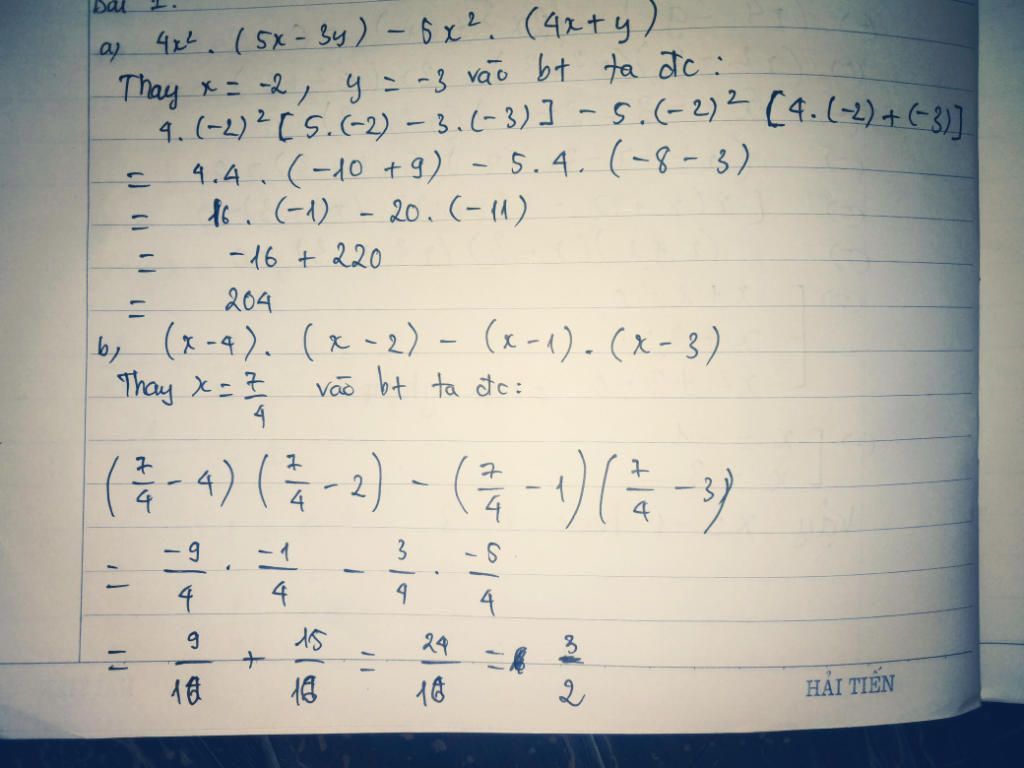 Bài 1.
a) 4x² . (5x - 3y) - 5x² . (4x + y)
Thay x = -2, y = -3 vào bt ta đc:
4.(-2)² [5.(-2) - 3.(-3)] - 5.(-2)² [4.(-2) + (-3)]
= 4.4 . (-10 + 9) - 5.4. (-8 - 3)
= 16 . (-1) - 20. (-11)
= -16 + 220
= 204
b, (x-4). (x - 2) - (x-1) . (x - 3)
Thay x = 7/4 vào bt ta đc:
(7/4 - 4) (7/4 - 2) - (7/4 - 1) (7/4 - 3)
= -9/4 . -1/4 - 3/4 . -5/4
= 9/16 + 15/16 = 24/16 = 3/2
HẢI TIẾN